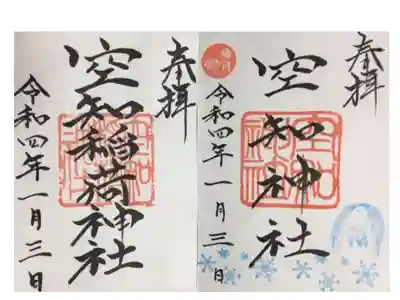 奉拝
空知稲荷神社
令和四年一月三日
奉拝
空知神社
令和四年一月三日